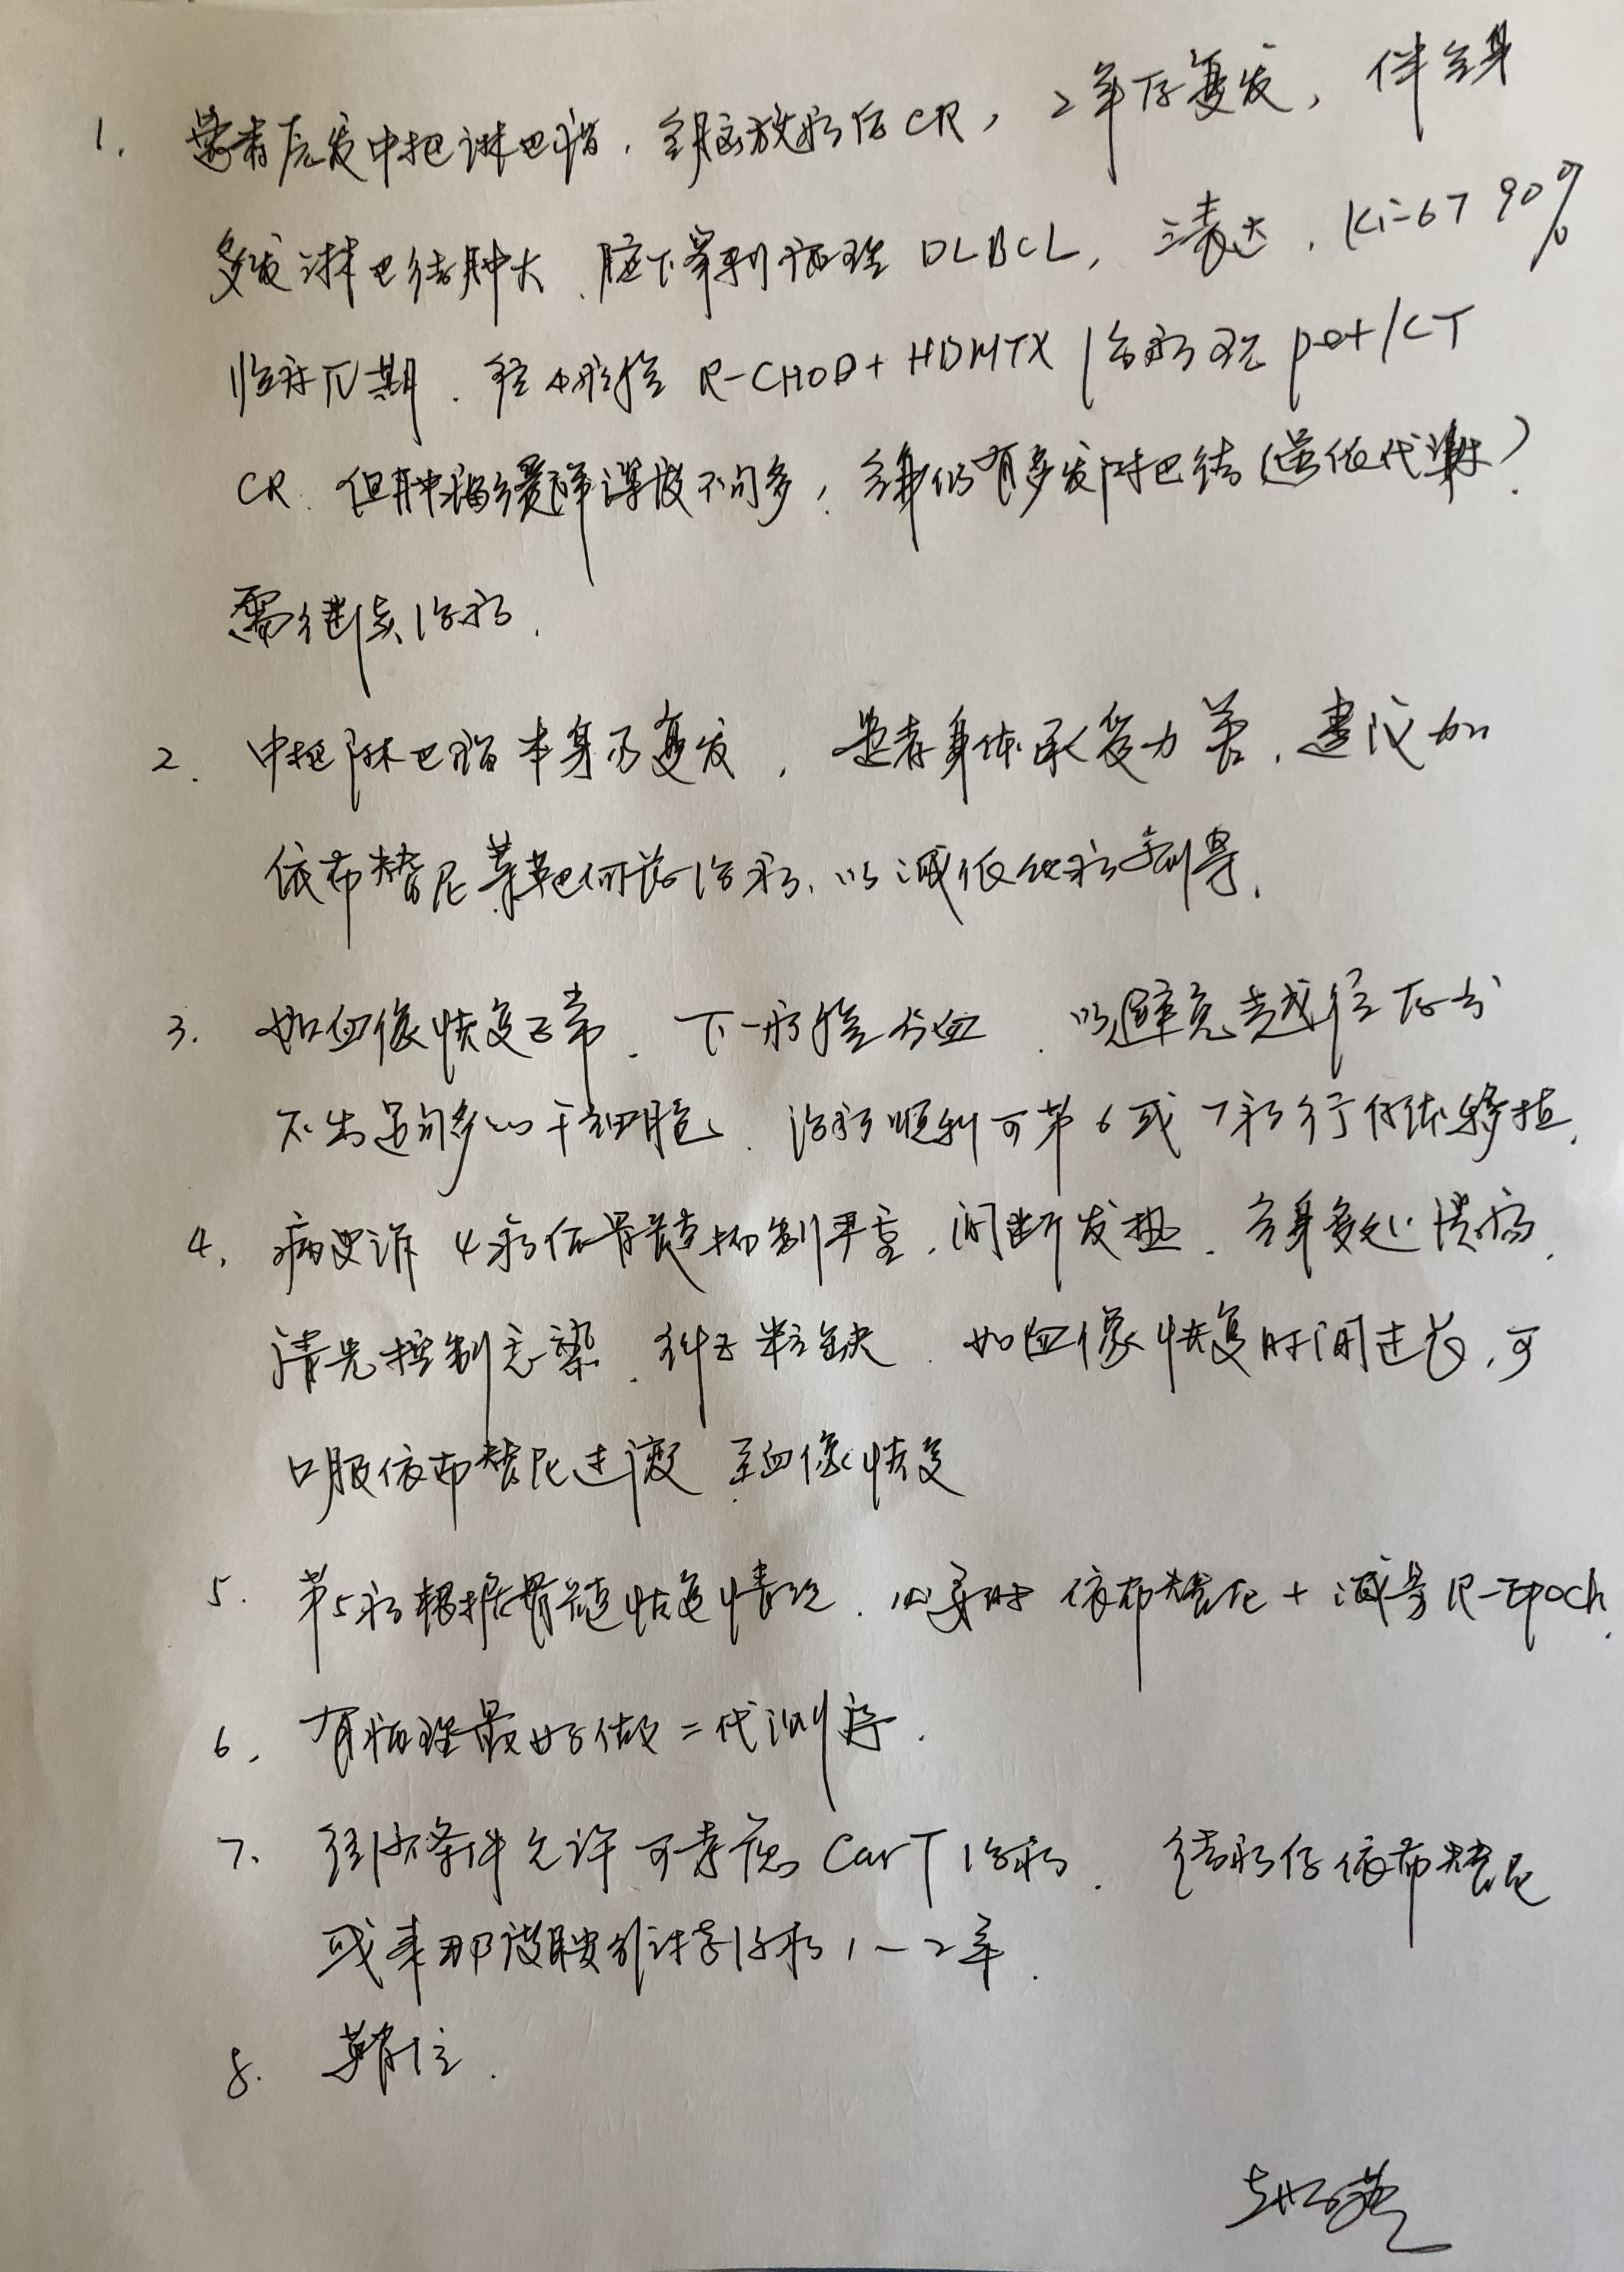 1. 患者原发中枢淋巴瘤，全脑放疗后CR，2年后复发，伴全身
多发淋巴结肿大，腋下穿刺病理DLBCL，三表达，Ki-67 90%
临床IV期，经4疗程R-CHOP+HDMTX治疗现pet/CT
CR，但肿瘤缓解深度不够多，全身仍有多发淋巴结（虽低代谢）
需继续治疗.
2. 中枢淋巴瘤本身易复发，患者身体承受力差，建议加
依布替尼等靶向药治疗，以减低化疗剂量.
3. 如血像恢复正常，下一疗程分血，以避免越往后分
不出足够多的干细胞，治疗顺利可第6或7疗行自体移植.
4. 病史诉4疗后骨髓抑制严重，间断发热，全身多处溃疡，
请先控制感染，纠正粒缺，如血像恢复时间过长，可
口服依布替尼过渡至血像恢复
5. 第5疗根据骨髓恢复情况，必要时依布替尼+减量R-Epoch.
6. 有病理最好做二代测序.
7. 经济条件允许可考虑CarT治疗，结疗后依布替尼
或来那度胺维持治疗1-2年.
8.